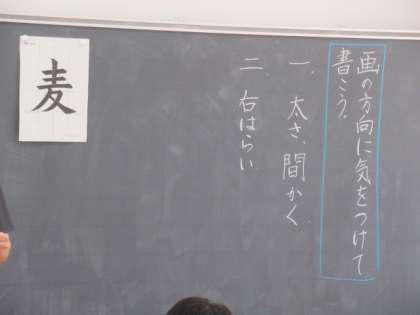 画の方向に気をつけて
書こう。
一、太さ、間かく
二、右はらい
麦